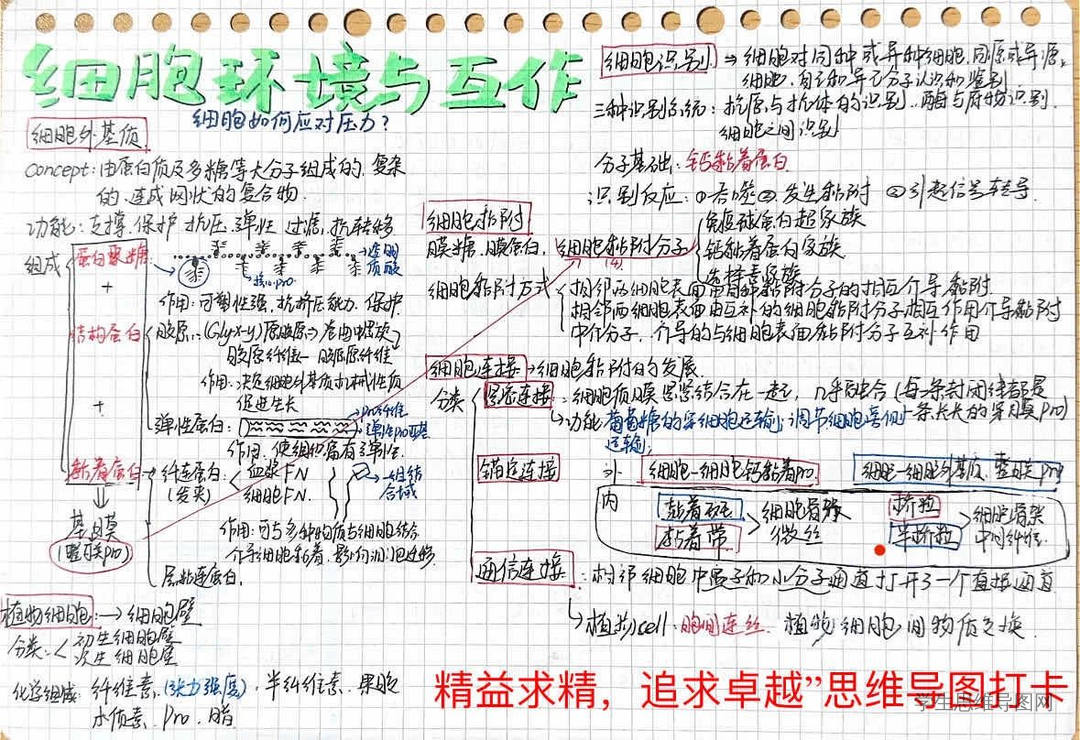 细胞环境与互作
细胞如何应对压力?
细胞外基质
concept:由蛋白质及多糖等大分子组成的.复杂
的.连成网状的复合物.
功能:支撑.保护.抗压.弹性 过滤.抗转移
组成
蛋白聚糖
核心pro.
透明
质酸
作用:可塑性强,抗挤压能力.保护.
+
结构蛋白
胶原:(Gly-x-y)原胶原
胶原纤维
作用:决定细胞外基质机械性质
促进生长
+
弹性蛋白:
作用:使组织富有弹性.
粘着蛋白
纤连蛋白:
血浆FN
细胞FN.
结
合域
作用:可与多种物质与细胞结合
介导细胞粘着.影响细胞迁移.
层粘连蛋白.
基膜
(整联pro)
植物细胞:→细胞壁
分类:<初生细胞壁
次生细胞壁
化学组成:纤维素.(张力强度).半纤维素.果胶
木质素.Pro.脂
细胞识别⇒细胞对同种或异种细胞.同源或异源
细胞.自己和异己分子认识和鉴别
三种识别系统:抗原与抗体的识别.酶与底物识别.
细胞之间识别
分子基础:钙黏着蛋白
识别反应:①吞噬②发生黏附 ③引起信号转导.
细胞黏附
膜糖.膜蛋白.细胞黏附分子
(4)
免疫球蛋白超家族
钙黏着蛋白家族
选择素家族
细胞黏附方式
相邻两细胞表面同种黏附分子的相互介导黏附
相邻两细胞表面由互补的细胞黏附分子相互作用介导黏附
中介分子.介导的与细胞表面黏附分子互补作用
细胞连接→细胞黏附的发展.
分类
紧密连接→细胞质膜紧密结合在一起,几乎融合(每条封闭线都是
一条长长的穿膜pro)
功能:葡萄糖的穿细胞运输;调节细胞旁侧
运输;
锚定连接
外
细胞-细胞钙黏着pro.
细胞-细胞外基质.整联pro
内
黏着斑
黏着带
细胞骨架
微丝
桥粒
半桥粒
细胞骨架
中间纤维.
通信连接:相邻细胞中离子和小分子通道打开了一个直接通道
植物cell:胞间连丝.植物细胞间物质交换.
精益求精,追求卓越”思维导图打卡
学生思维导图网